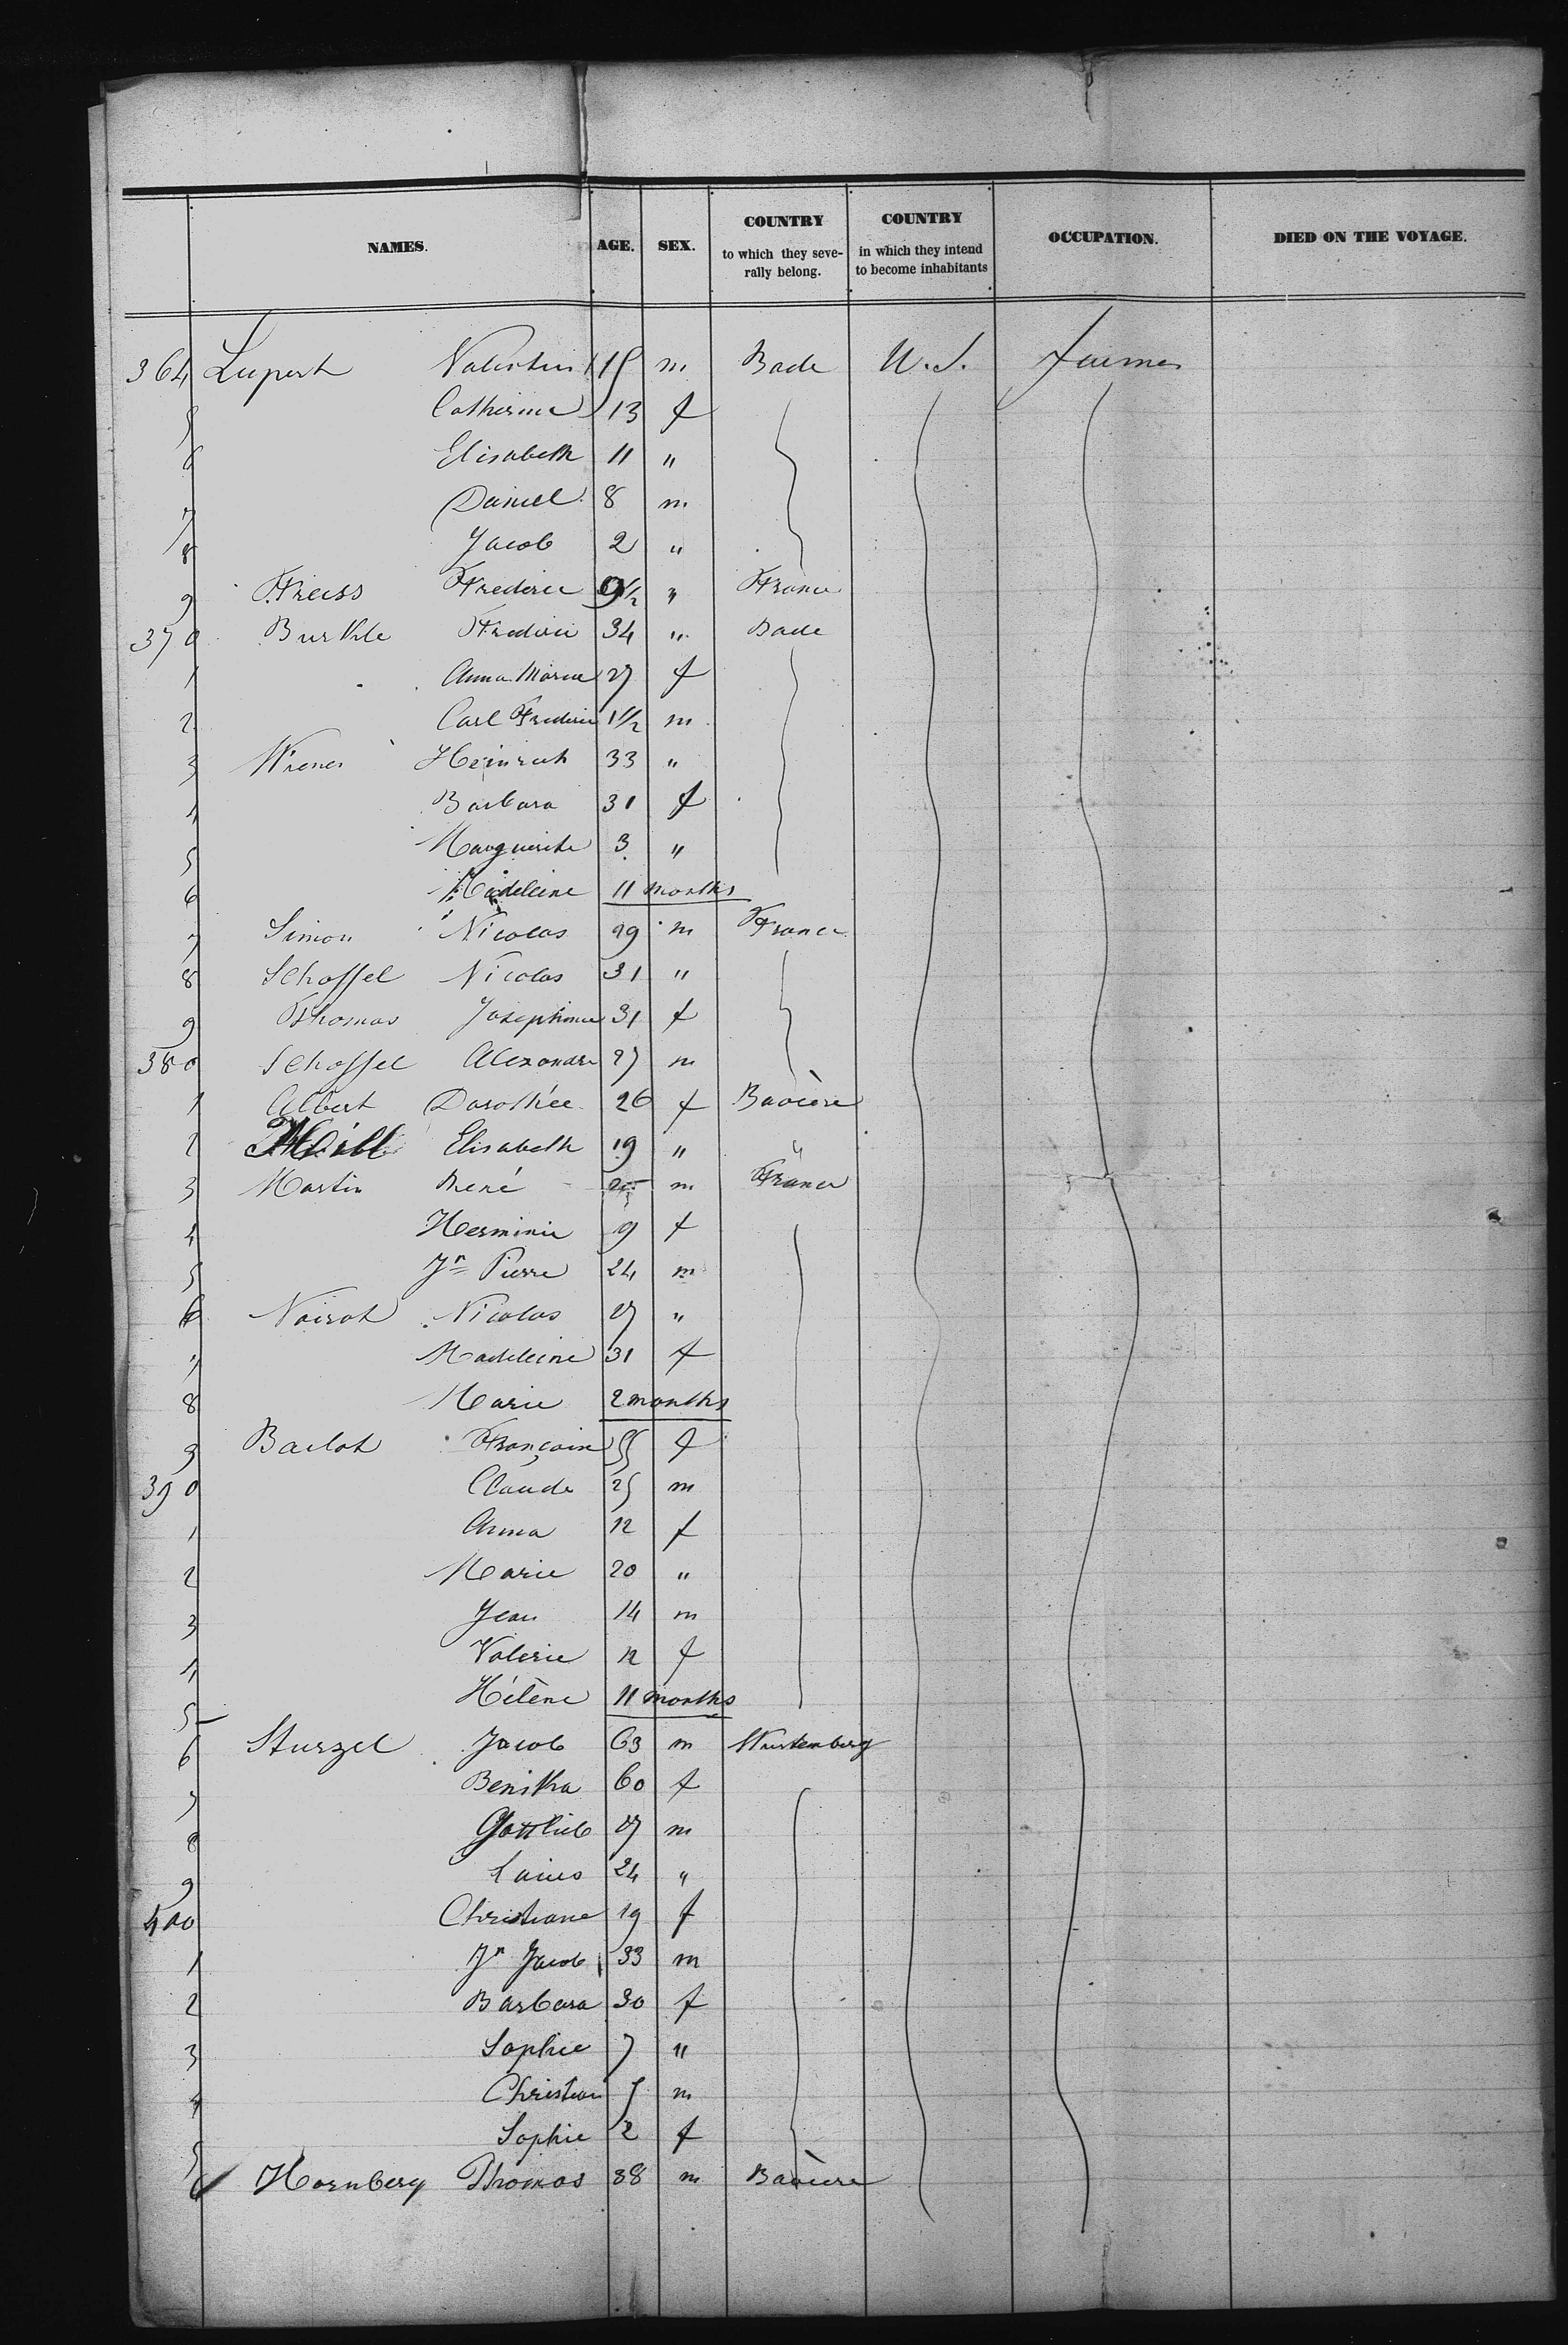 NAMES. AGE. SEX. COUNTRY to which they seve-rally belong. COUNTRY in which they intend to become inhabitants OCCUPATION. DIED ON THE VOYAGE.
364 Lupert Valentin 15 m Bade U.S. Farmer
5 Catherine 13 f
6 Elisabeth 11 "
7 Daniel 8 m
8 Jacob 2 "
9 Freiss Frederic 9½ " France
370 Burkle Frederic 34 " Bade
1 Anna Marie 27 f
2 Carl Frederic 1½ m
3 Wiener Heinrich 33 "
4 Barbara 31 f
5 Marguerite 3 "
6 Madeleine 11 months
7 Simon Nicolas 29 m France
8 Schoffel Nicolas 31 "
9 Thomas Josephine 31 f
380 Schoffel Alexandre 27 m
1 Albert Dorothée 26 f Bavière
2 Elisabeth 19 " "
3 Martin René 25 m France
4 Herminie 9 f
5 Jn Pierre 24 m
6 Noirot Nicolas 27 "
7 Madeleine 31 f
8 Marie 2 months
9 Barlot Françoise 55 f
390 Claude 25 m
1 Anna 12 f
2 Marie 20 "
3 Jean 14 m
4 Valerie 12 f
5 Hélène 11 months
6 Sturzel Jacob 63 m Wurtemberg
7 Benitha 60 f
8 Gottlieb 27 m
9 Louis 24 "
400 Christiane 19 f
1 Jn Jacob 33 m
2 Barbara 30 f
3 Sophie 7 "
4 Christian 5 m
5 Sophie 2 f
6 Hornberg Thomas 38 m Bavière